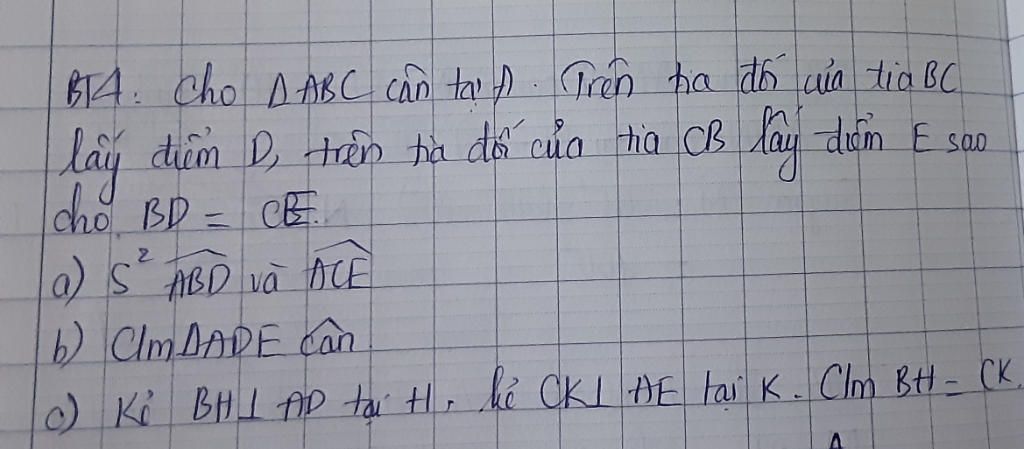 BT4: Cho ΔABC cân tại A. Trên tia đối của tia BC
lấy điểm D, trên tia đối của tia CB lấy điểm E sao
cho BD = CE.
a) S² \widehat{ABD} và \widehat{ACE}
b) C/m ΔADE cân
c) Kẻ BH⊥AD tại H, kẻ CK⊥AE tại K. C/m BH = CK.
A